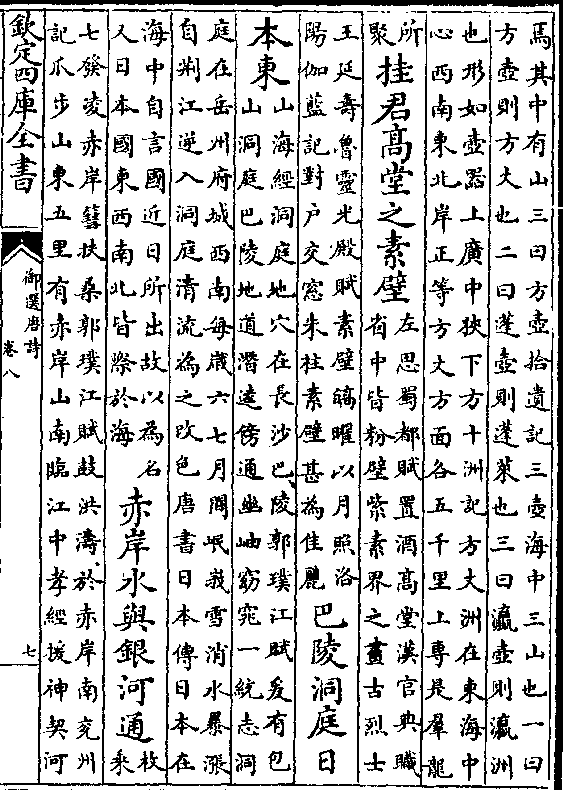 馬其中有山三曰方壺拾遺記三壺海中三山也一曰
方壺則方丈也二曰蓬壺則蓬萊也三曰瀛壺則瀛洲
也形如壺器上廣中狹下方十洲記方丈洲在東海中
心西南東北岸正等方丈方面各五千里上專是羣龍
所
聚
挂君高堂之素壁
左思蜀都賦置酒高堂漢官典職
省中皆粉壁紫素界之畫古烈士
王延壽魯靈光殿賦素壁皜曜以月照洛
陽伽藍記對戶交窓朱柱素壁甚為佳麗
巴陵洞庭日
本東
山海經洞庭地穴在長沙巴陵郭璞江賦爰有包
山洞庭巴陵地道潛逵傍通幽岫窈窕一統志洞
庭在岳州府城西南每歳六七月間岷峩雪消水暴漲
自荆江逆入洞庭清流為之改色唐書日本傳日本在
海中自言國近日所出故以為名
人日本國東西南北皆際於海
赤岸水與銀河通
枚
乘
七發凌赤岸篲扶桑郭璞江賦鼓洪濤於赤岸南兖州
記瓜步山東五里有赤岸山南臨江中孝經援神契河
欽定四庫全書
御選唐詩
卷八
七